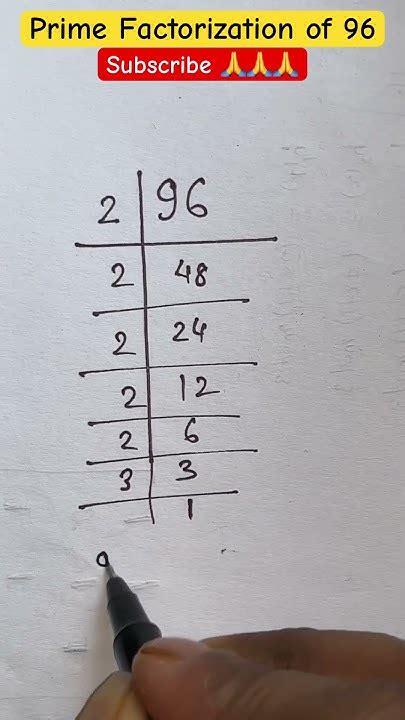 Prime Factorization of 96
Subscribe 🙏🙏🙏
2 96
2 48
2 24
2 12
2 6
3 3
1